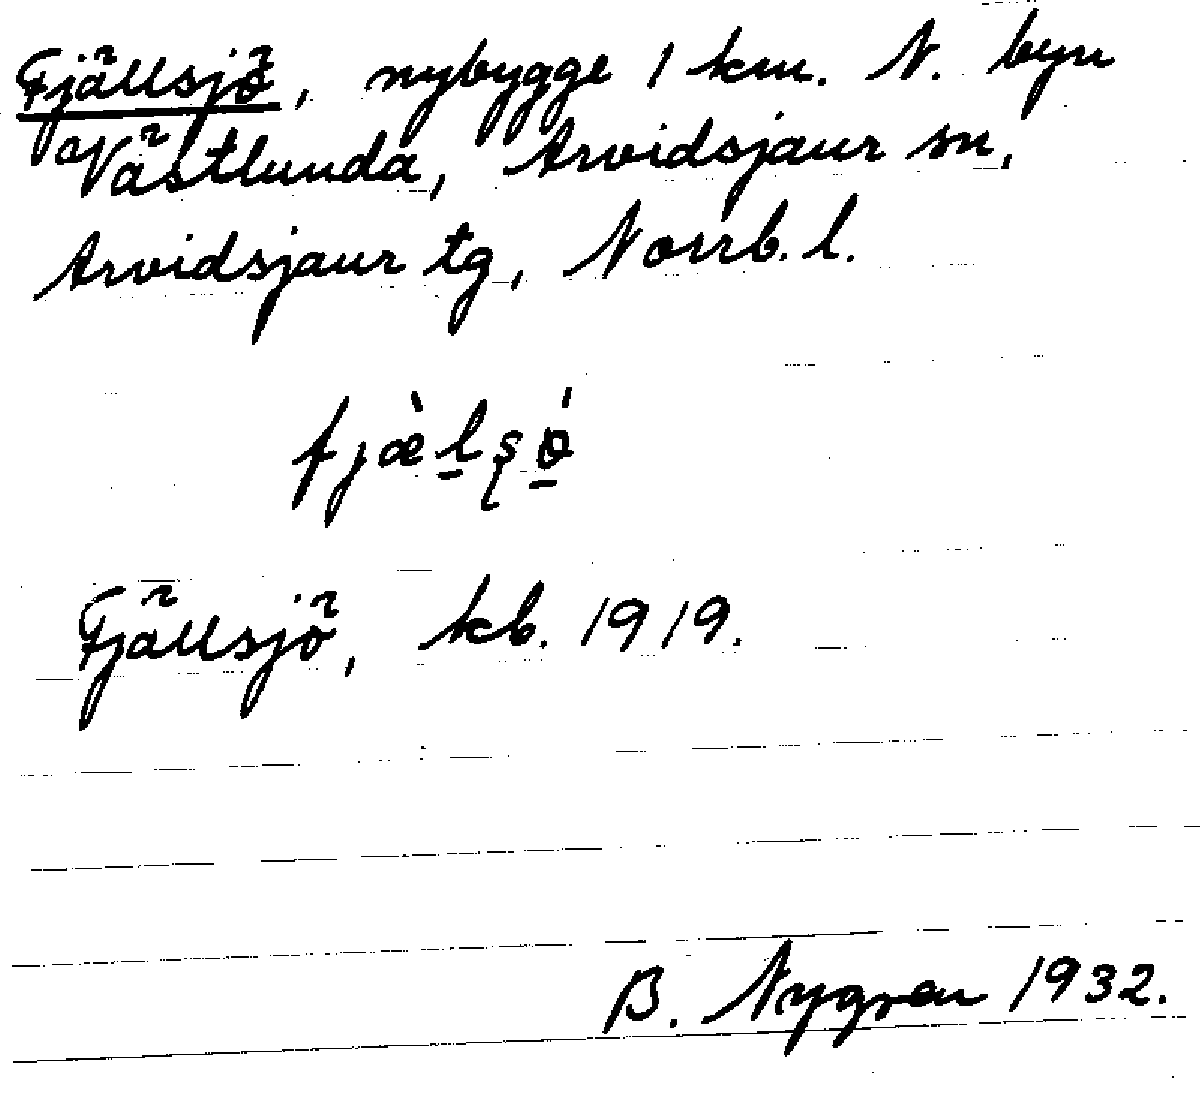 Fjällsjö, nybygge 1 km. N. byn
Västlunda, Arvidsjaur sn,
Arvidsjaur tg, Norrb. l.
fjæ̀l̠ʂǿ̠
Fjällsjö, kb. 1919.
B. Nygren 1932.